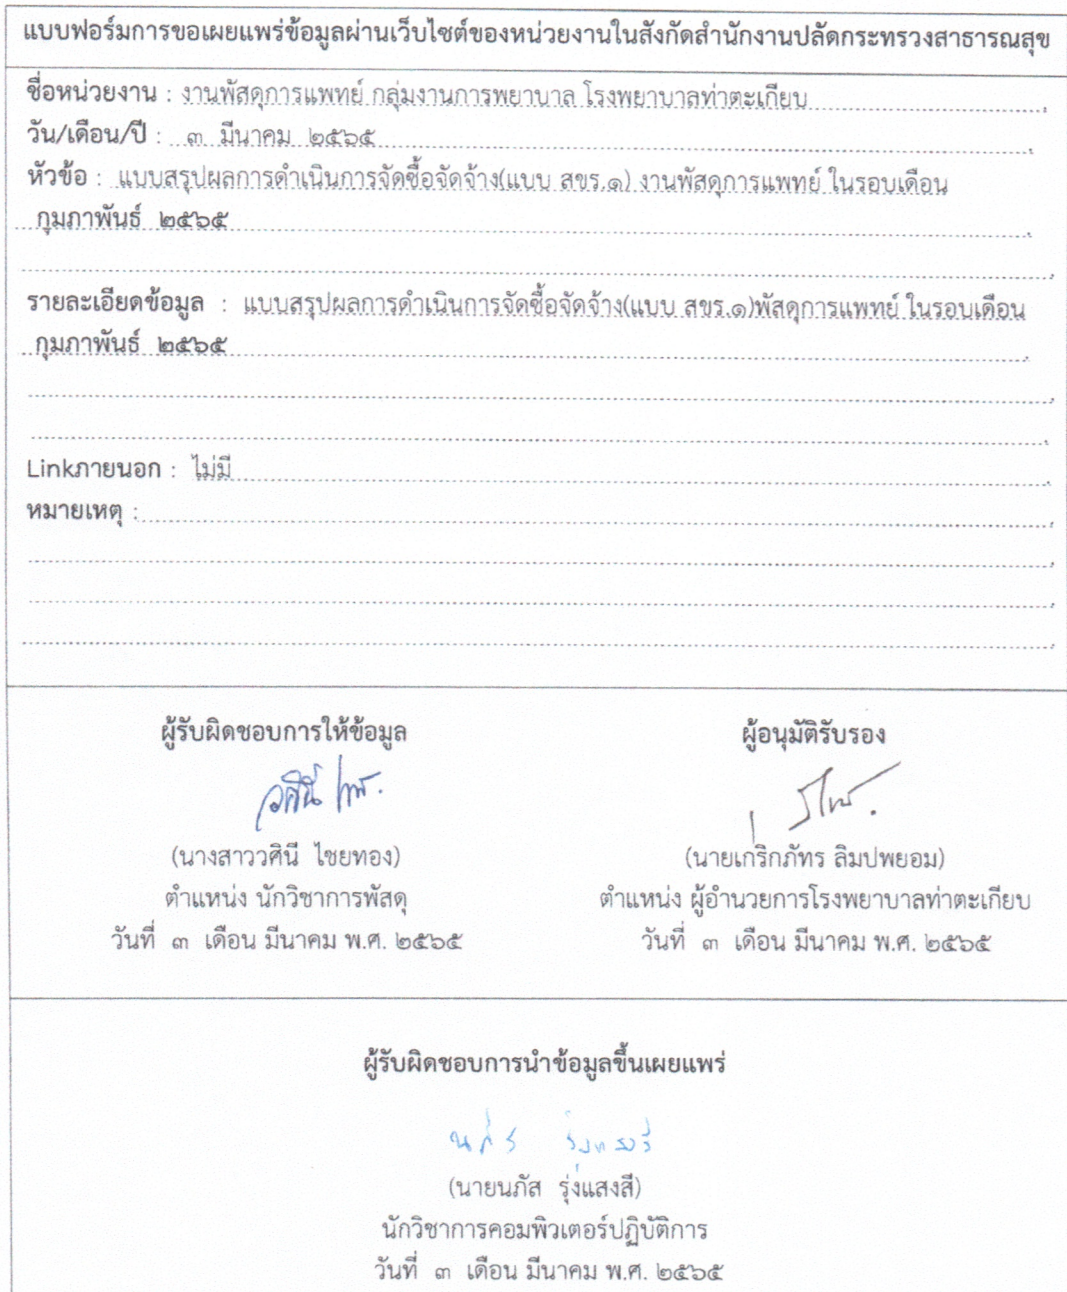 แบบฟอร์มการขอเผยแพร่ข้อมูลผ่านเว็บไซต์ของหน่วยงานในสังกัดสำนักงานปลัดกระทรวงสาธารณสุข
ชื่อหน่วยงาน : งานพัสดุการแพทย์ กลุ่มงานการพยาบาล โรงพยาบาลท่าตะเกียบ
วัน/เดือน/ปี : ๓ มีนาคม ๒๕๖๕
หัวข้อ : แบบสรุปผลการดำเนินการจัดซื้อจัดจ้าง(แบบ สขร.๑) งานพัสดุการแพทย์ ในรอบเดือน
กุมภาพันธ์ ๒๕๖๕
รายละเอียดข้อมูล : แบบสรุปผลการดำเนินการจัดซื้อจัดจ้าง(แบบ สขร.๑)พัสดุการแพทย์ ในรอบเดือน
กุมภาพันธ์ ๒๕๖๕
Linkภายนอก : ไม่มี
หมายเหตุ :
ผู้รับผิดชอบการให้ข้อมูล
(นางสาววศินี ไชยทอง)
ตำแหน่ง นักวิชาการพัสดุ
วันที่ ๓ เดือน มีนาคม พ.ศ. ๒๕๖๕
ผู้อนุมัติรับรอง
(นายเกริกภัทร ลิมปพยอม)
ตำแหน่ง ผู้อำนวยการโรงพยาบาลท่าตะเกียบ
วันที่ ๓ เดือน มีนาคม พ.ศ. ๒๕๖๕
ผู้รับผิดชอบการนำข้อมูลขึ้นเผยแพร่
(นายนภัส รุ่งแสงสี)
นักวิชาการคอมพิวเตอร์ปฏิบัติการ
วันที่ ๓ เดือน มีนาคม พ.ศ. ๒๕๖๕